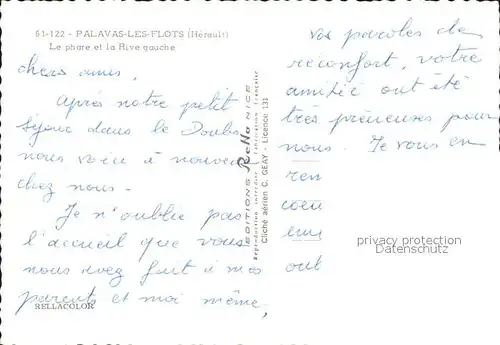 61-122 - PALAVAS-LES-FLOTS (Hérault)
Le phare et la Rive gauche
chers amis,
Après notre petit
séjour dans le Doubs
nous voici à nouveau
chez nous.
Je n'oublie pas
l'accueil que vous
nous avez fait à mes
parents et moi même,
RELLACOLOR
EDITIONS Rella NICE
Reproduction interdite - Fabrication Française
Cliché aérien C. GEAY - Licence 131
vos paroles de
réconfort, votre
amitié ont été
très précieuses pour
nous. Je vous en
rem
coeu
ont
privacy protection
Datenschutz